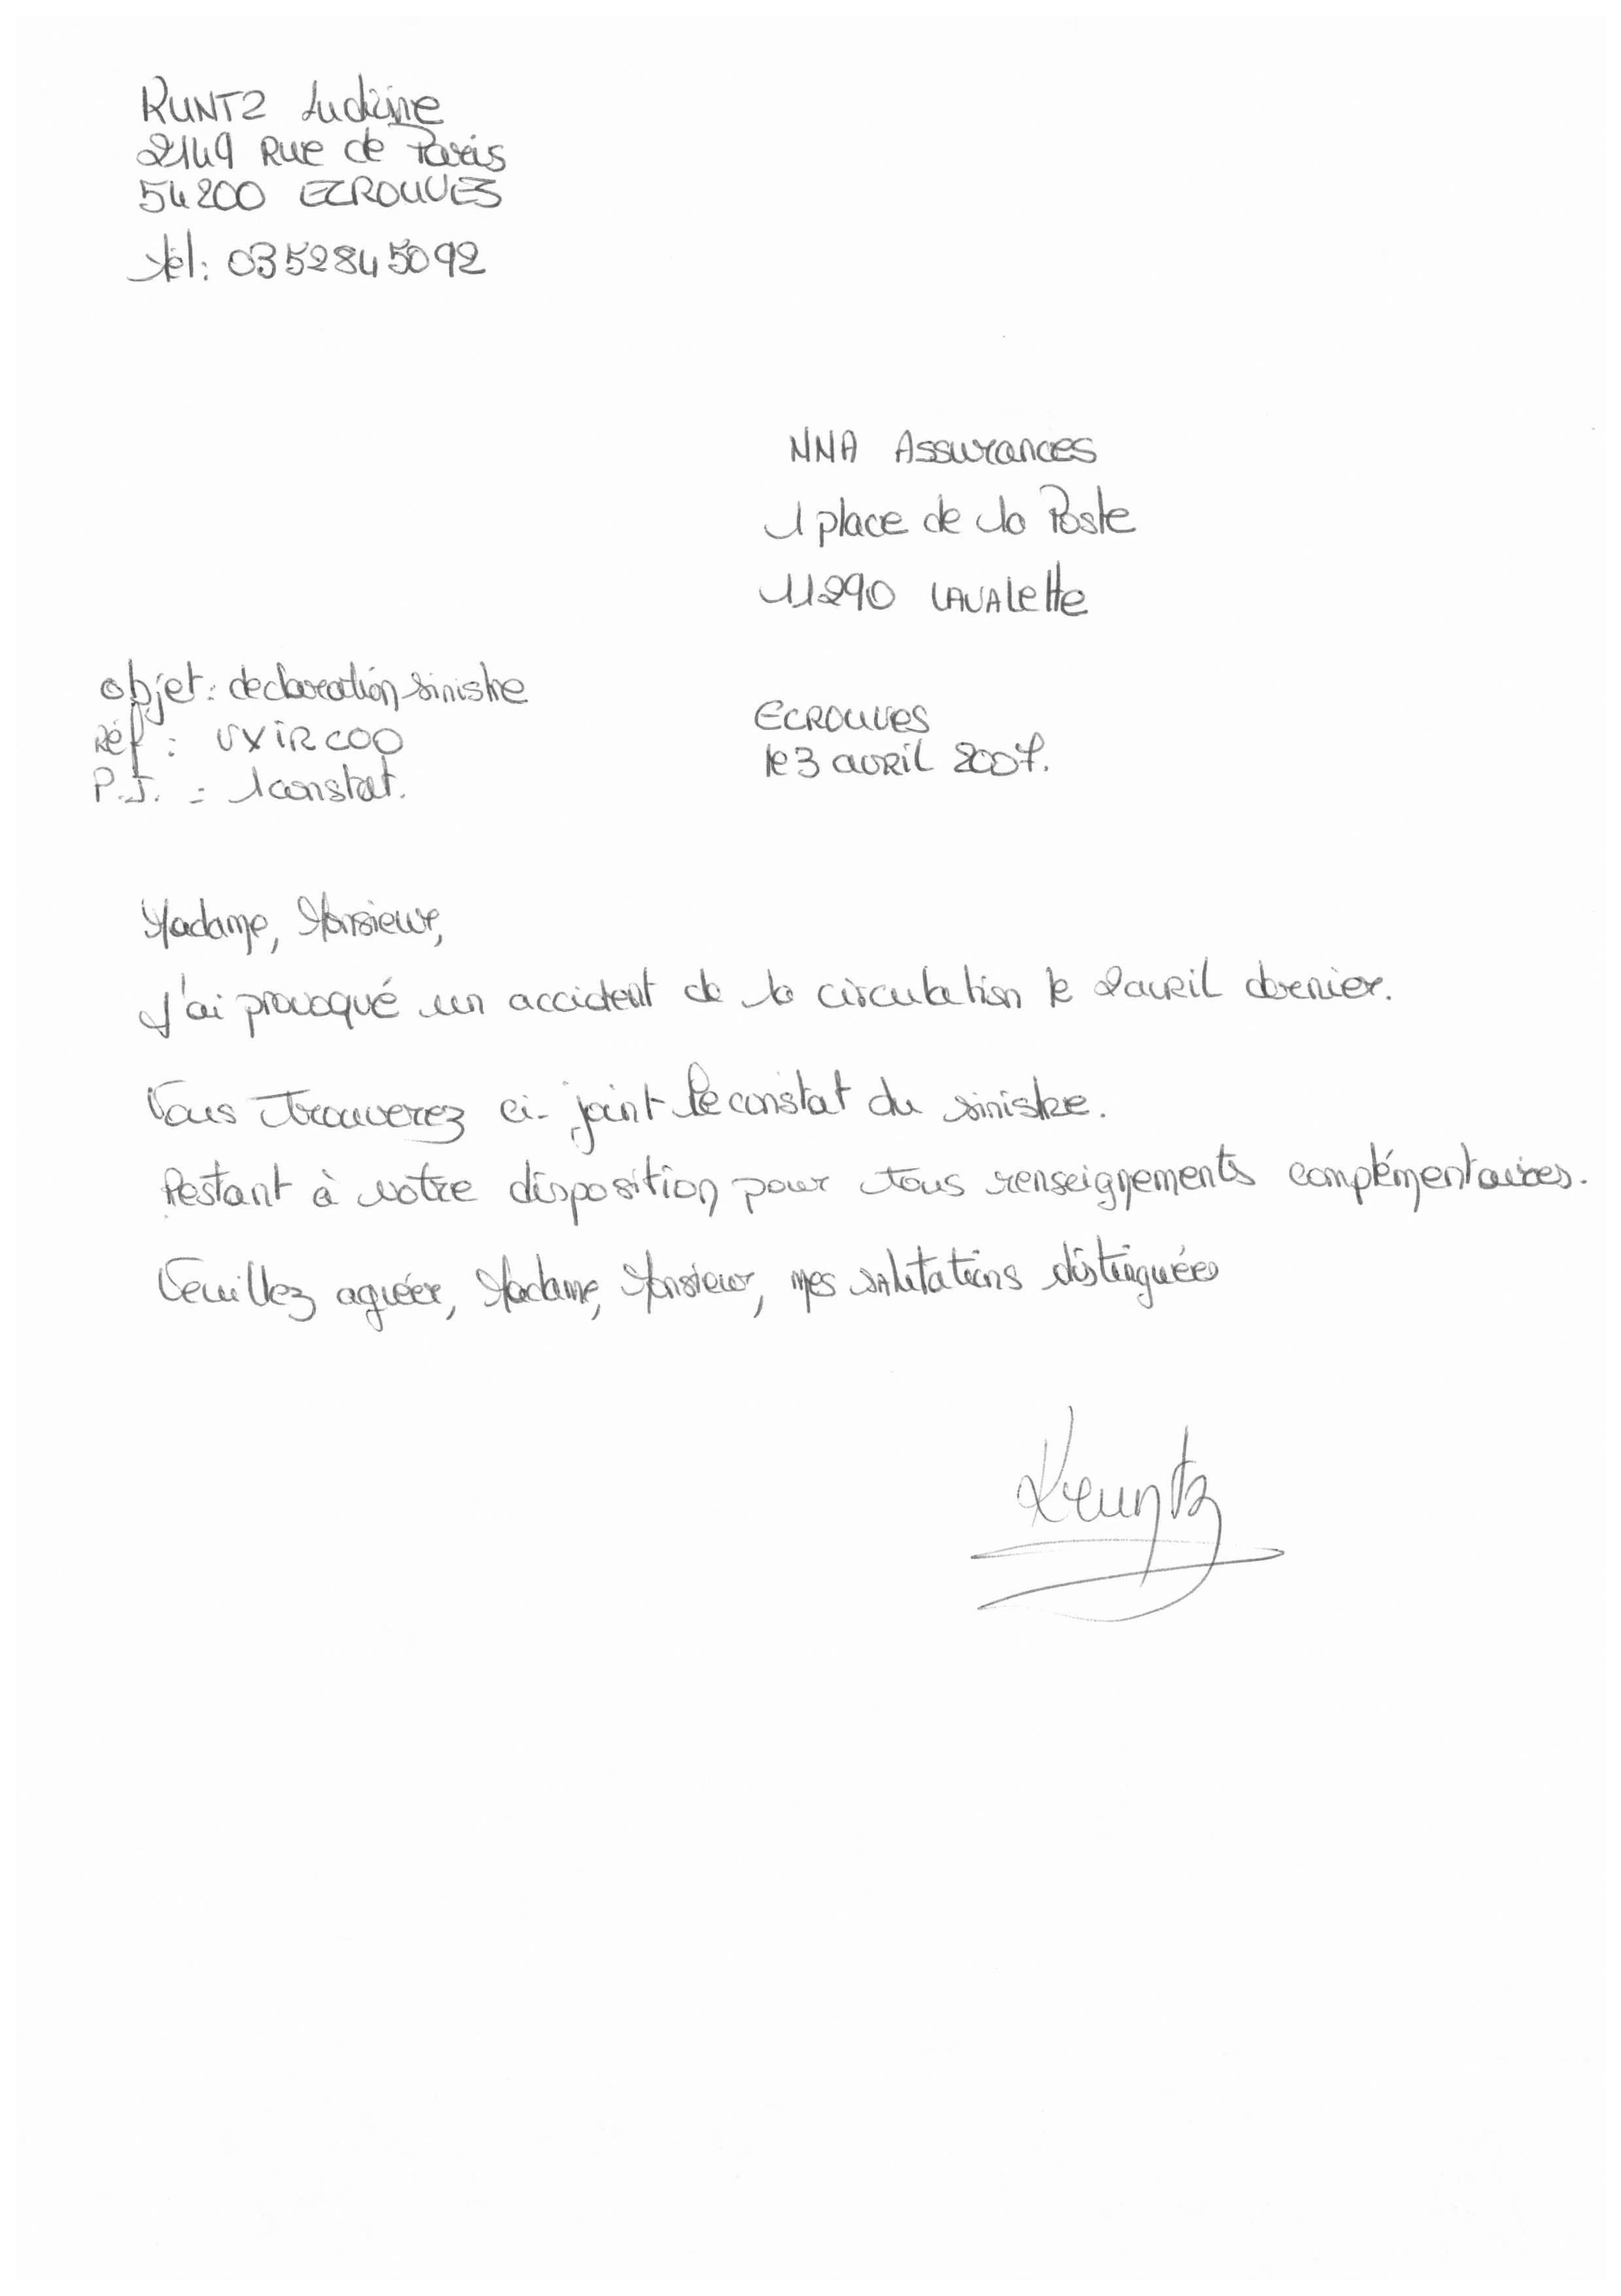 RUNTZ Ludivine
2149 Rue de Paris
54200 ECROUVES
tel: 0352845092
NNA Assurances
1 place de la Poste
11290 LAVALette
objet: declaration sinistre
Réf : UXIRCOO
P.J. : 1 constat.
ECROUVES
le 3 avril 2007.
Madame, Monsieur,
J'ai provoqué un accident de la circulation le 2 avril dernier.
Vous trouverez ci-joint le constat du sinistre.
Restant à votre disposition pour tous renseignements complémentaires.
Veuillez agréer, Madame, Monsieur, mes salutations distinguées